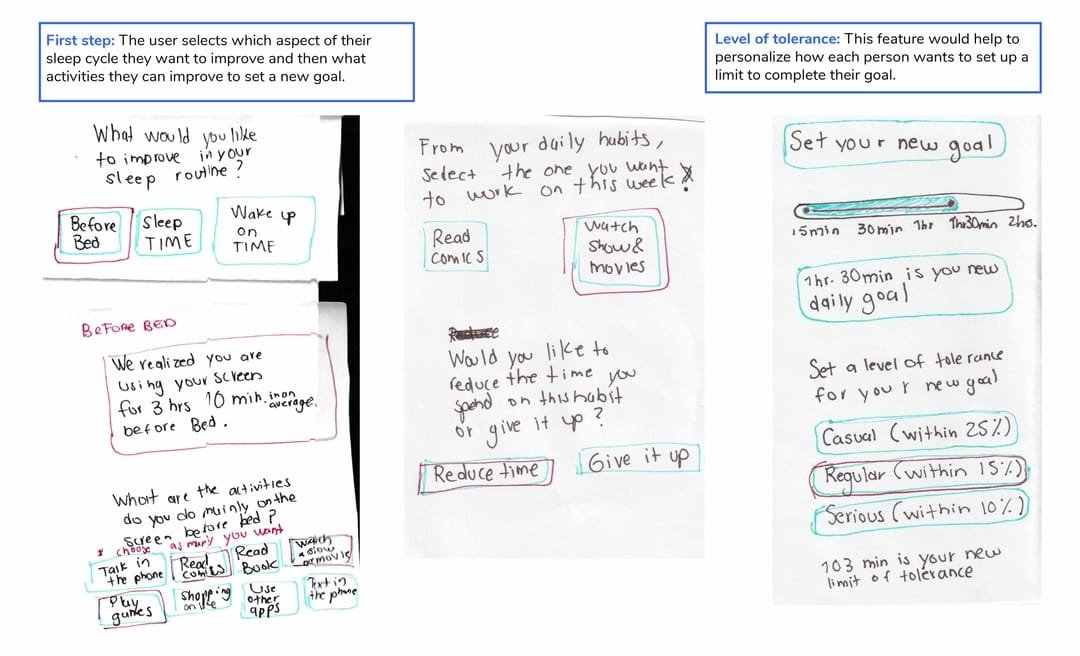 First step: The user selects which aspect of their
sleep cycle they want to improve and then what
activities they can improve to set a new goal.
What would you like
to improve in your
sleep routine ?
Before
Bed
Sleep
TIME
Wake up
on
TIME
BEFORE BED
We realized you are
using your screen
for 3 hrs 10 min. in an
average.
before Bed.
What are the activities
do you do mainly on the
screen before bed ?
* choose as many you want
Talk in
the phone
Read
comics
Read
Book
Watch
a show
or movie
Play
games
Shopping
online
Use
other
apps
Text in
the phone
From your daily habits,
select the one you want
to work on this week!
Read
comics
Watch
Show &
movies
Reduce
Would you like to
reduce the time you
spend on this habit
or give it up ?
Reduce time
Give it up
Level of tolerance: This feature would help to
personalize how each person wants to set up a
limit to complete their goal.
Set your new goal
15min 30min 1hr 1hr30min 2ho.
1hr. 30min is you new
daily goal
Set a level of tolerance
for your new goal
Casual (within 25%)
Regular (within 15%)
Serious (within 10%)
103 min is your new
limit of tolerance